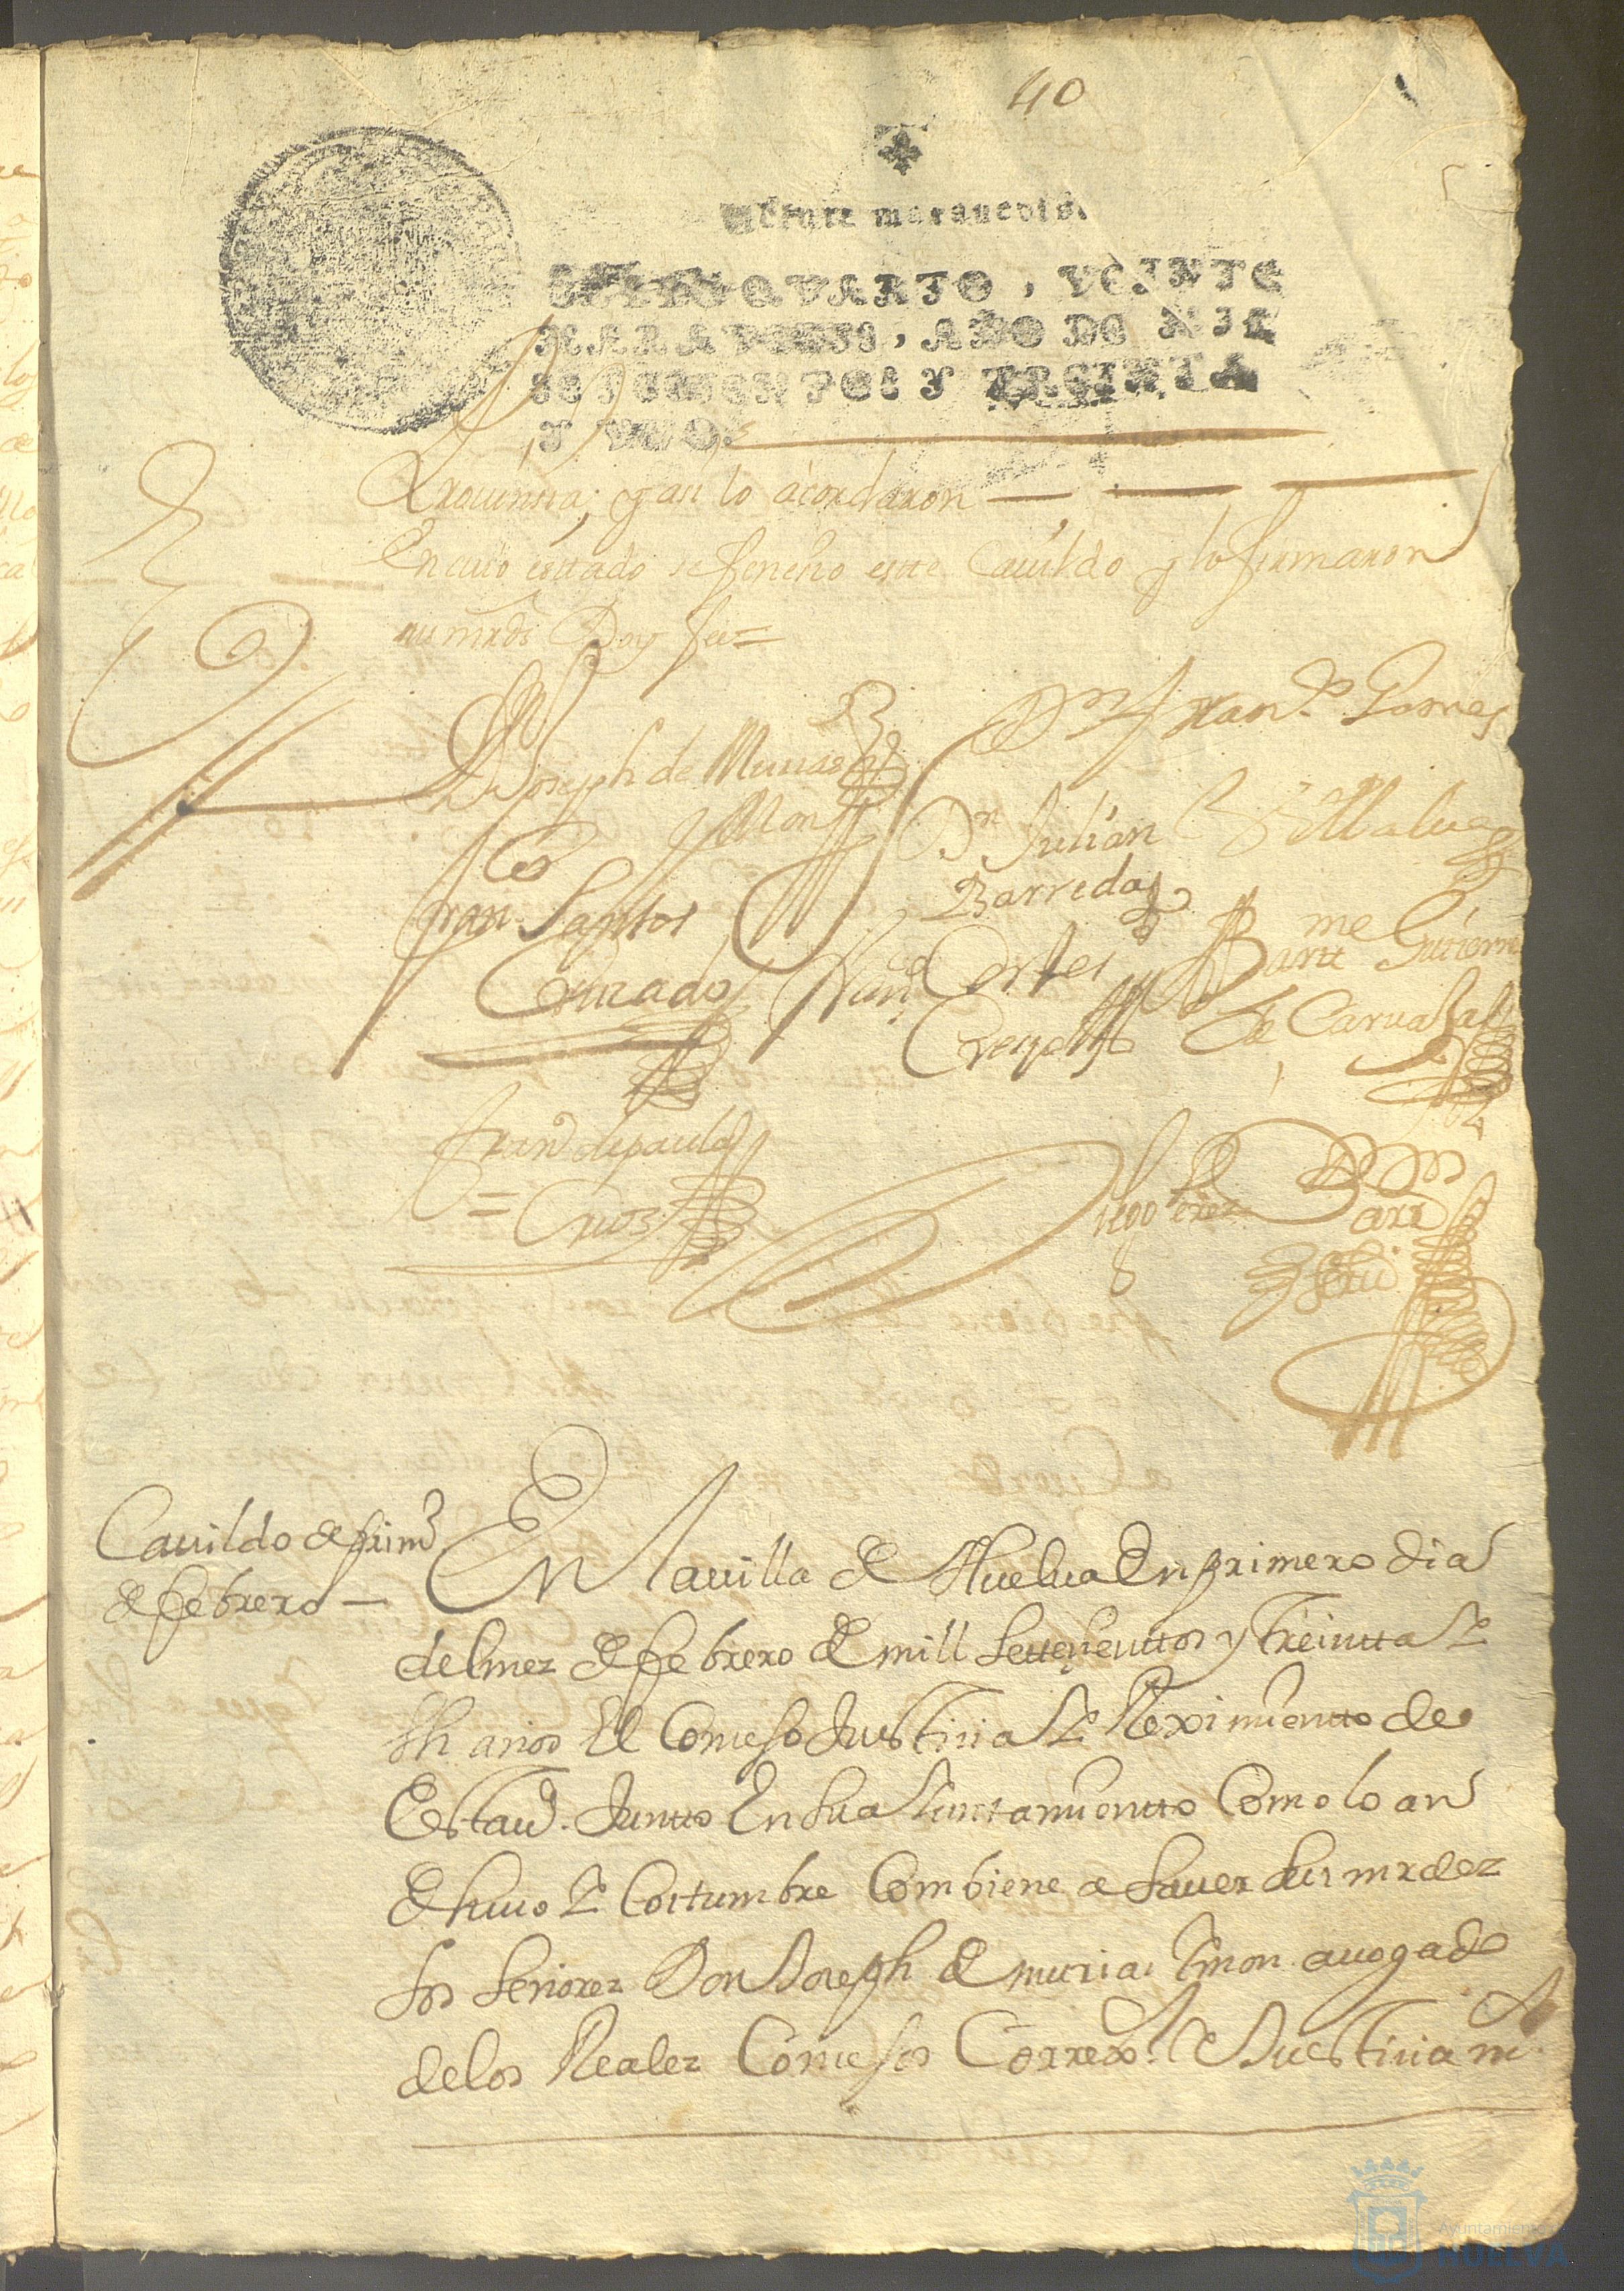 40
Veinte maravedis.
SELLO QVARTO, VEINTE
MARAVEDIS, AÑO DE MIL
SETECIENTOS Y TREINTA
Y VNO.
Provinsia; y asi lo acordaron
En cuio esttado se feneçio estte Cavildo y lo firmaron
sus mrds Doy fee=
Dn Joseph de Murias
Mon
Dn Fran.co Torres
Villalva
Dn Julian
Barreda
Franco Santos
Cruzado
Franco Cortes
Crespo
Barttme Gutierre
de Carvajal
Franco de paula
= Cruz
Diego Perez
Cavildo de prim.o
de febrero —
En la villa de Huelva En primero dia
del mez de febrero de mill Settesenttos y Treintta y
Un anos El Consejo Justisia y Reximientto de
Esta v.a Juntto En su a Yuntamientto Como lo an
de huso y Costumbre Combiene a saver sus mrdez
los senorez Don Joseph de murias y mon avogado
de los Realez Consejos Correx.or y Justisia m.or
Ayuntamiento
HUELVA